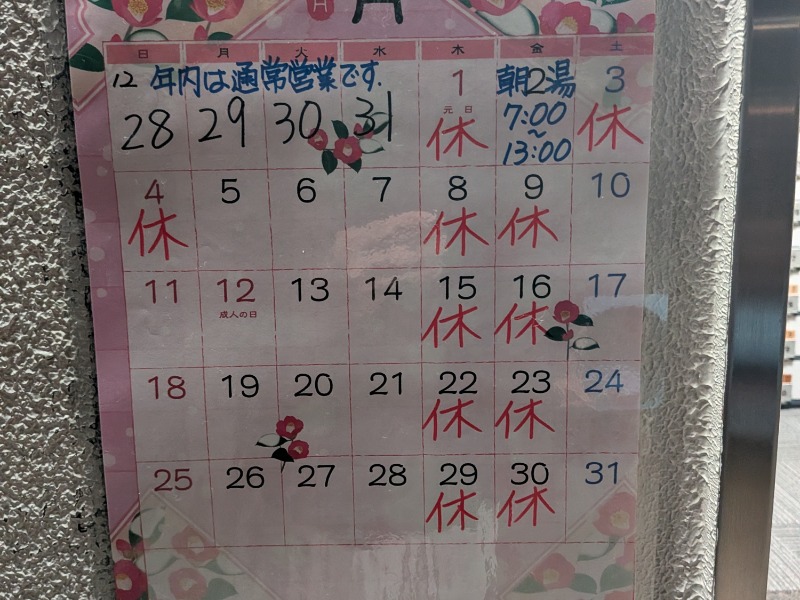 月
日 月 火 水 木 金 土
12 年内は通常営業です.
28 29 30 31 1 朝2湯 3
元日
休 7:00 休
~
13:00
4 5 6 7 8 9 10
休 休 休
11 12 13 14 15 16 17
成人の日
休 休
18 19 20 21 22 23 24
休 休
25 26 27 28 29 30 31
休 休